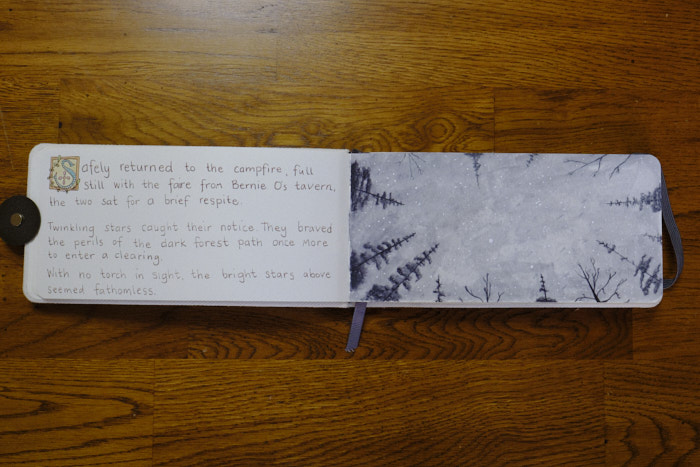 Safely returned to the campfire, full
still with the fare from Bernie O's tavern,
the two sat for a brief respite.
Twinkling stars caught their notice. They braved
the perils of the dark forest path once more
to enter a clearing.
With no torch in sight, the bright stars above
seemed fathomless.